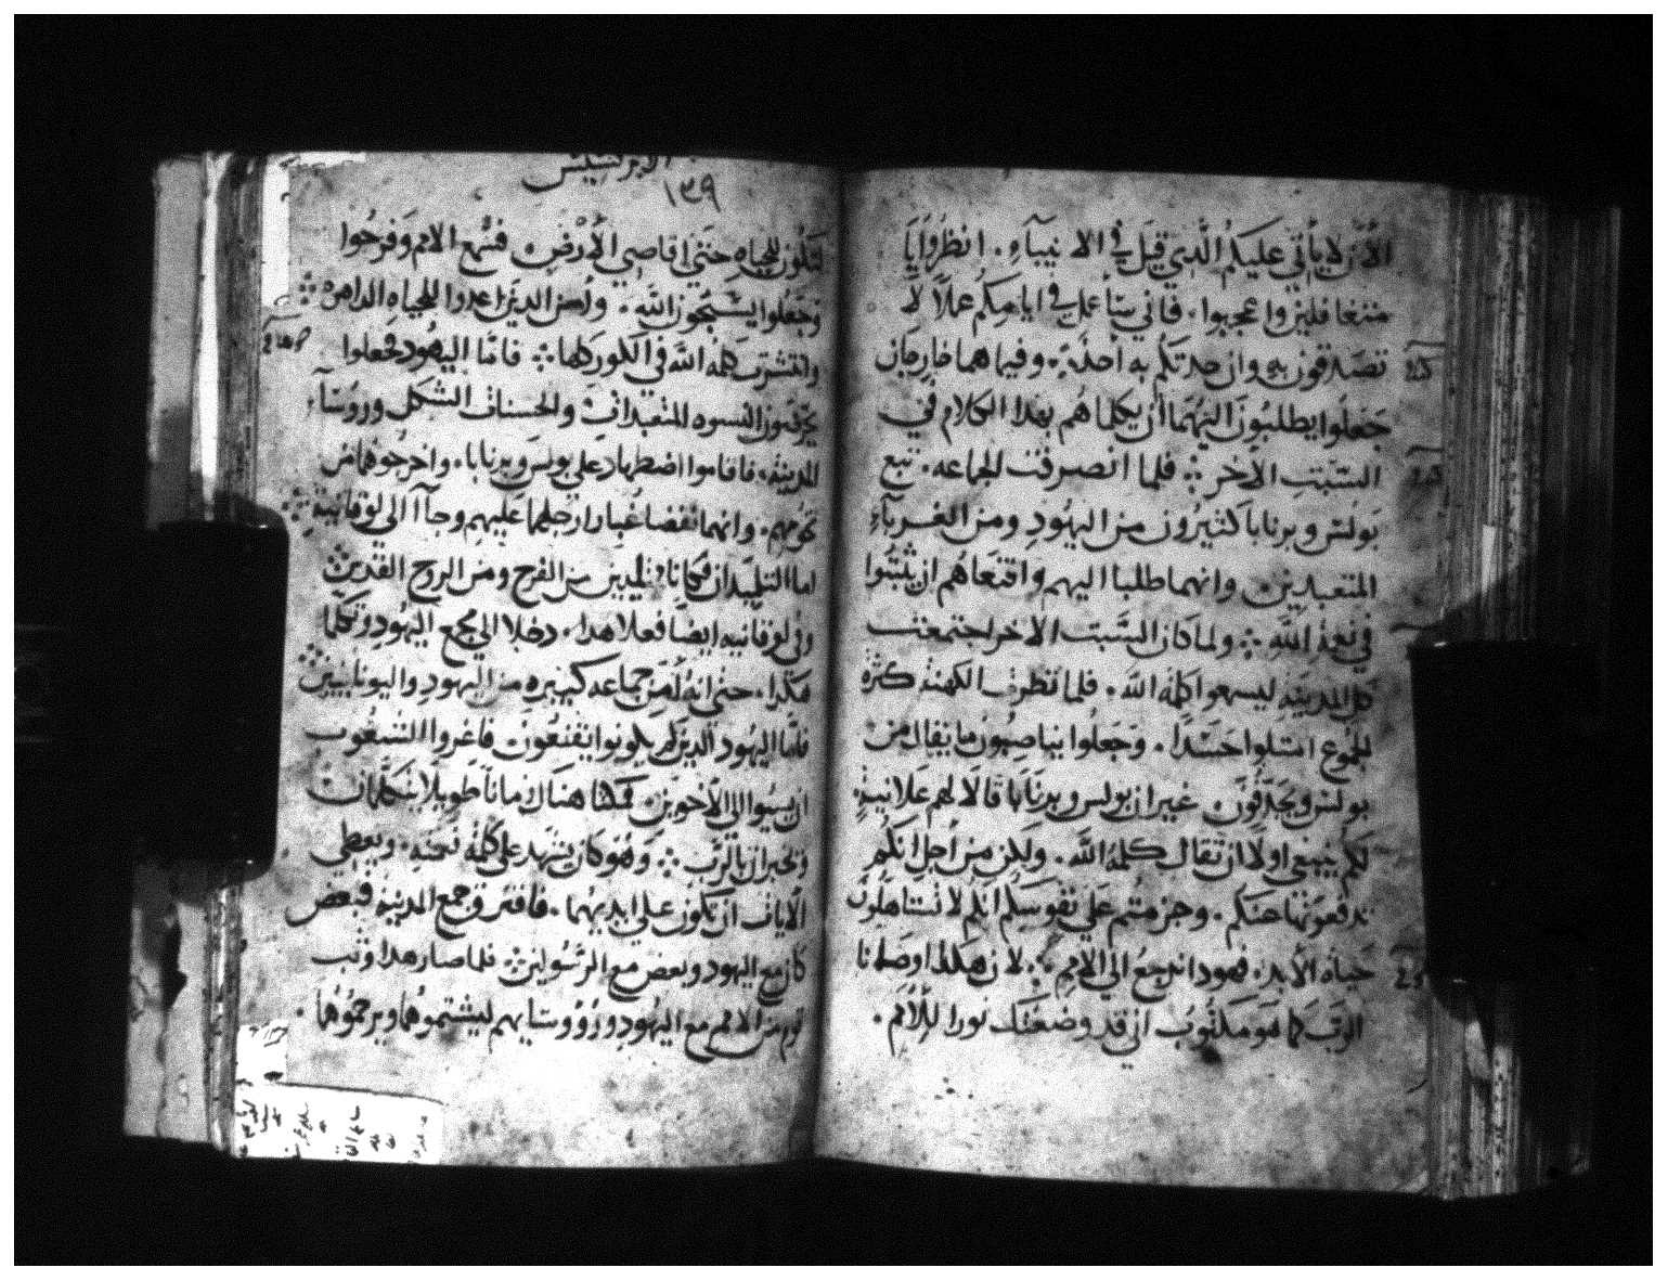 الأن لا يأتي عليكم الَّدي قيل في الانبيآء . انظرُوا يَا
متغافلين واعجبوا . فاني سأعمل في ايامكم عملًا لا
تصدقون به وان حدتكم به أحدٌ . وفيما هما خارجان
جَعَلوا يطلبُونَ اليهُمَا أن يكلماهُم بهدا الكلام في
السَّبتِ الأخر . فلما انصرفت الجماعه . تبع
بَولس وبرنابا كتيرُون من اليهُودِ ومن الغربآء
المتعبدين . وانهما طلبا اليهم واقنعاهُم ان يثبتُوا
في نعمة اللَّهِ . ولما كان السَّبت الاخر اجتمعت
كل المدينةِ ليسمعوا كلمة الله . فلما نظرت الكهنة كثرة
الجموع امتلوا حَسَدًا . وَجَعلُوا يناصبُون ما يقال من
بولس ويجَدّفُونَ . غير ان بولس وبرنَابَا قالَا لهم عَلانيةٍ .
لكم ينبغي اولًا ان تقال كلمة اللَّه . ولكن من أجل انكُم
تدفعونها عنكم . وجزمتم علي نفوسَكم انكم لا تستاهلون
حَياة الأبد . فهودا نرجعُ الي الامم . لان هكدا اوصَانا
الربّ كما هوَ مَكتُوبُ اني قد وضعتك نورا للأمم .
الابركسيس
١٣٩
لتكون للحياه حَتي اقاصي الأرْض . فسُمع الامم وَفرحُوا
وَجَعلُوا يسَبّحُون اللَّه . وأمن الدين اعدوا للحياه الداهره
وانتشرت كلمة اللَّه في الكور كلها . فامَّا اليهُود فجعلوا
يحرّضون النسوه المتعبدات والحسنات الشكل ورُوسَآء
المدينة . فاقاموا اضطهاد علي بولس وبرنابا . واخرجُوهمَا من
تخومهم . وانهما نفضا غُبار ارجلهما عَليهم وجآا الي لوقانية
اما التلميدان فكانا يمتليين من الفرح ومن الروح القدس
وفي لوقانيه ايضًا فعلا هدا . دخلا الي مجمع اليهُود وتكلما
هكدا . حتي انهُ أمن جماعه كبيره من اليهودِ واليونانيين
فامَّا اليهُود الَّدين لم يكونوا يقنعُون فاغروا الشعُوب
ان يسيُوا الي الأخوين . فمكثا هناك زمانًا طويلا يتكلَّمانِ
ويخبران بالرّب . وَهوَ كان يشهد علي كلمة نعمته . ويعطي
الأيات ان تكون علي ايديهُما . فافترق جمع المدينة فبعض
كان مع اليهود وبعض مع الرَّسُولين . فلما صار هدا وَتب
قوم من الامم مع اليهُودِ ورُوُوسَايهم ليشتموُهُما ويرجمُوهُما .